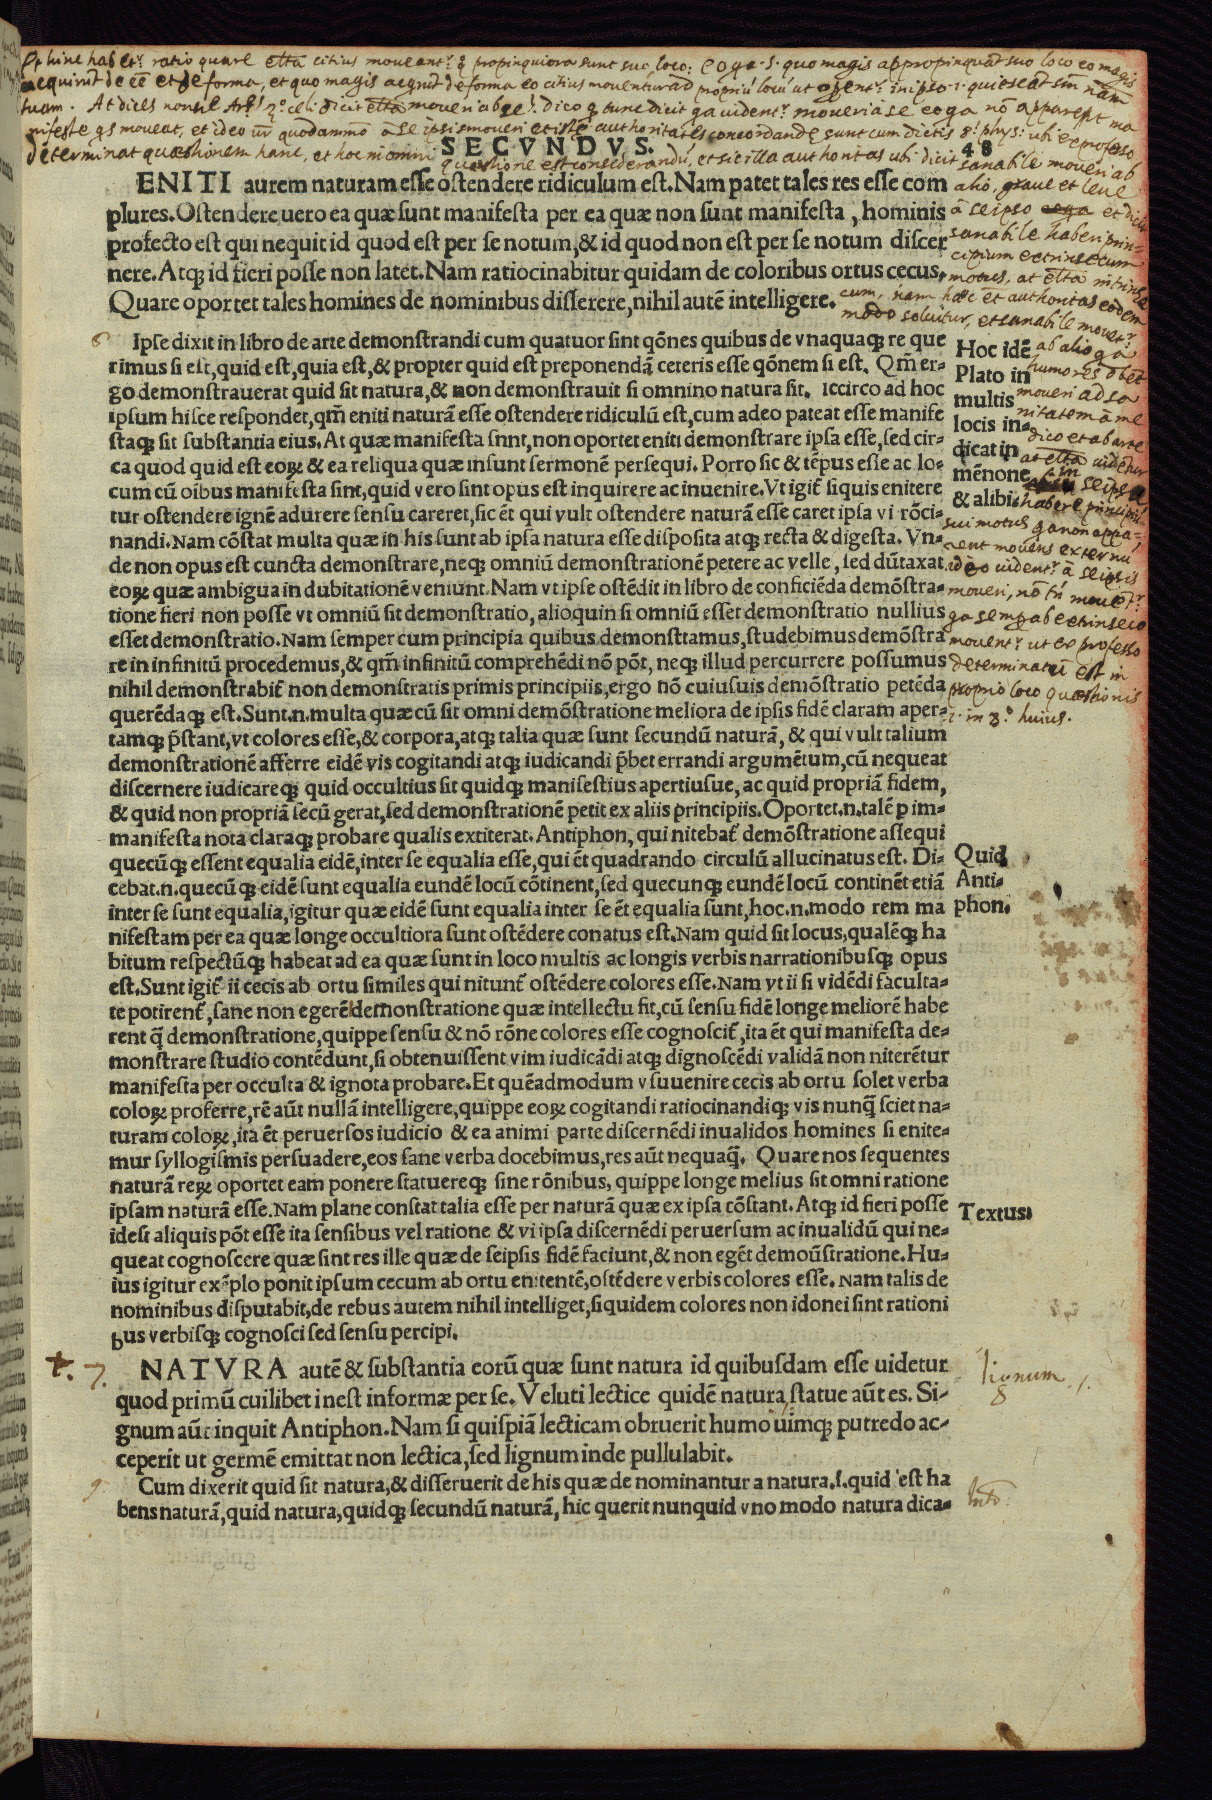 Et hinc habetr ratio quare elta citius moveantr q propinquiora sunt suo loco: eoqa .s. quo magis appropinquãt suo loco eo magis
acquirũt de eẽ et de forma, et quo magis acqrũt de forma eo citius moventur ad propriũ locũ ut
suam. At dices
nifeste qs moveat, et ideo ur quodammõ a se ipsis moveri et iste authoritates concordandę sunt cum dictis 8. phys: ubi ex professo
determinat quæstionem hanc, et hoc in omni quæstione est considerandũ, et sic illa authoritas ubi dicit
SECVNDVS.
48
ENITI aurem naturam esse ostendere ridiculum est. Nam patet tales res esse com
plures. Ostendere uero ea quæ sunt manifesta per ea quæ non sunt manifesta, hominis
profecto est qui nequit id quod est per se notum, & id quod non est per se notum discer
nere. Atq; id fieri posse non latet. Nam ratiocinabitur quidam de coloribus ortus cecus.
Quare oportet tales homines de nominibus disserere, nihil autẽ intelligere.
sanabile moveri ab
alio, grave et leve
a seipso et dicit
sanabile haberi prin-
cipium extrinsecum
motus, at elta intrinse
cum, nam hæc et authoritas eodem
modo solvitur, et sanabile movetr
ab alio qa
humores
moveri ad sa
nitatem a me
dico et ab arte
at elta videtur
in seipsa
habere principiũ
sui motus qa non appa-
rent movens externũ
ideo videntr a seipsis
moveri, nõ tñ moventr
qa semp ab extrinseco
moventr ut ex professo
determinatũ est in
proprio loco quæstionis
in 8.º huius.
6 Ipse dixit in libro de arte demonstrandi cum quatuor sint qõnes quibus de vnaquaq; re que
rimus si est, quid est, quia est, & propter quid est preponendã ceteris esse qõnem si est. Qm̃ er-
go demonstrauerat quid sit natura, & non demonstrauit si omnino natura sit. Iccirco ad hoc
ipsum hisce respondet, qm̃ eniti naturã esse ostendere ridiculũ est, cum adeo pateat esse manife
staq; sit substantia eius. At quæ manifesta snnt, non oportet eniti demonstrare ipsa esse, sed cir-
ca quod quid est eoꝝ & ea reliqua quæ insunt sermonẽ persequi. Porro sic & tẽpus esse ac lo-
cum cũ oibus manifesta sint, quid vero sint opus est inquirere ac inuenire. Vt igit̃ siquis enitere
tur ostendere ignẽ adurere sensu careret, sic ẽt qui vult ostendere naturã esse caret ipsa vi rõci-
nandi. Nam cõstat multa quæ in his sunt ab ipsa natura esse disposita atq; recta & digesta. Vn-
de non opus est cuncta demonstrare, neq; omniũ demonstrationẽ petere ac velle, sed dũtaxat
eoꝝ quæ ambigua in dubitationẽ veniunt. Nam vt ipse ostẽdit in libro de conficiẽda demõstra-
tione fieri non posse vt omniũ sit demonstratio, alioquin si omniũ esset demonstratio nullius
esset demonstratio. Nam semper cum principia quibus demonsttamus, studebimus demõstra
re in infinitũ procedemus, & qm̃ infinitũ comprehẽdi nõ põt, neq; illud percurrere possumus
nihil demonstrabit̃ non demonstratis primis principiis, ergo nõ cuiusuis demõstratio petẽda
querẽdaq; est. Sunt.n. multa quæ cũ sit omni demõstratione meliora de ipsis fidẽ claram aper-
tamq; p̃stant, vt colores esse, & corpora, atq; talia quæ sunt secundũ naturã, & qui vult talium
demonstrationẽ afferre eidẽ vis cogitandi atq; iudicandi p̃bet errandi argumẽtum, cũ nequeat
discernere iudicareq; quid occultius sit quidq; manifestius apertiusue, ac quid propriã fidem,
& quid non propriã secũ gerat, sed demonstrationẽ petit ex aliis principiis. Oportet.n. talẽ p im-
manifesta nota claraq; probare qualis extiterat. Antiphon, qui nitebat̃ demõstratione assequi
quecũq; essent equalia eidẽ, inter se equalia esse, qui ẽt quadrando circulũ allucinatus est. Di-
cebat.n. quecũq; eidẽ sunt equalia eundẽ locũ cõtinent, sed quecunq; eundẽ locũ continẽt etiã
inter se sunt equalia, igitur quæ eidẽ sunt equalia inter se ẽt equalia sunt, hoc.n. modo rem ma
nifestam per ea quæ longe occultiora sunt ostẽdere conatus est. Nam quid sit locus, qualẽq; ha
bitum respectũq; habeat ad ea quæ sunt in loco multis ac longis verbis narrationibusq; opus
est. Sunt igit̃ ii cecis ab ortu similes qui nitunt̃ ostẽdere colores esse. Nam vt ii si vidẽdi faculta-
te potirent̃, sane non egerẽt demonstratione quæ intellectu fit, cũ sensu fidẽ longe meliorẽ habe
rent q̃ demonstratione, quippe sensu & nõ rõne colores esse cognoscit̃, ita ẽt qui manifesta de-
monstrare studio contẽdunt, si obtenuissent vim iudicãdi atq; dignoscẽdi validã non niterẽtur
manifesta per occulta & ignota probare. Et quẽadmodum vsuuenire cecis ab ortu solet verba
coloꝝ proferre, rẽ aũt nullã intelligere, quippe eoꝝ cogitandi ratiocinandiq; vis nunq̃ sciet na-
turam coloꝝ, ita ẽt peruersos iudicio & ea animi parte discernẽdi inualidos homines si enite-
mur syllogismis persuadere, eos sane verba docebimus, res aũt nequaq̃. Quare nos sequentes
naturã reꝝ oportet eam ponere statuereq; sine rõnibus, quippe longe melius sit omni ratione
ipsam naturã esse. Nam plane constat talia esse per naturã quæ ex ipsa cõstant. Atq; id fieri posse
idest aliquis põt esse ita sensibus vel ratione & vi ipsa discernẽdi peruersum ac inualidũ qui ne-
queat cognoscere quæ sint res ille quæ de seipsis fidẽ faciunt, & non egẽt demoũstratione. Hu-
ius igitur exẽplo ponit ipsum cecum ab ortu enitentẽ, ostẽdere verbis colores esse. Nam talis de
nominibus disputabit, de rebus autem nihil intelliget, siquidem colores non idonei sint rationi
bus verbisq; cognosci sed sensu percipi.
Hoc idẽ
Plato in
multis
locis in-
dicat in
mẽnone
& alibi.
Quid
Anti-
phon.
Textus.
t. 7. NATVRA autẽ & substantia eorũ quæ sunt natura id quibusdam esse uidetur
quod primũ cuilibet inest informæ per se. Veluti lectice quidẽ natura statue aũt es. Si-
gnum aũt inquit Antiphon. Nam si quispiã lecticam obruerit humo uimq; putredo ac-
ceperit ut germẽ emittat non lectica, sed lignum inde pullulabit.
lignum
8
9 Cum dixerit quid sit natura, & disseruerit de his quæ de nominantur a natura.s. quid est ha
bens naturã, quid natura, quidq; secundũ naturã, hic querit nunquid vno modo natura dica-